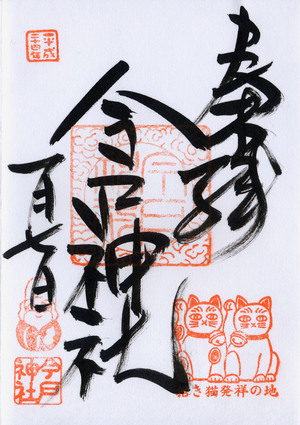 奉拝
今戸神社
一月七日
平成
二十四年
今戸
神社
招き猫発祥の地